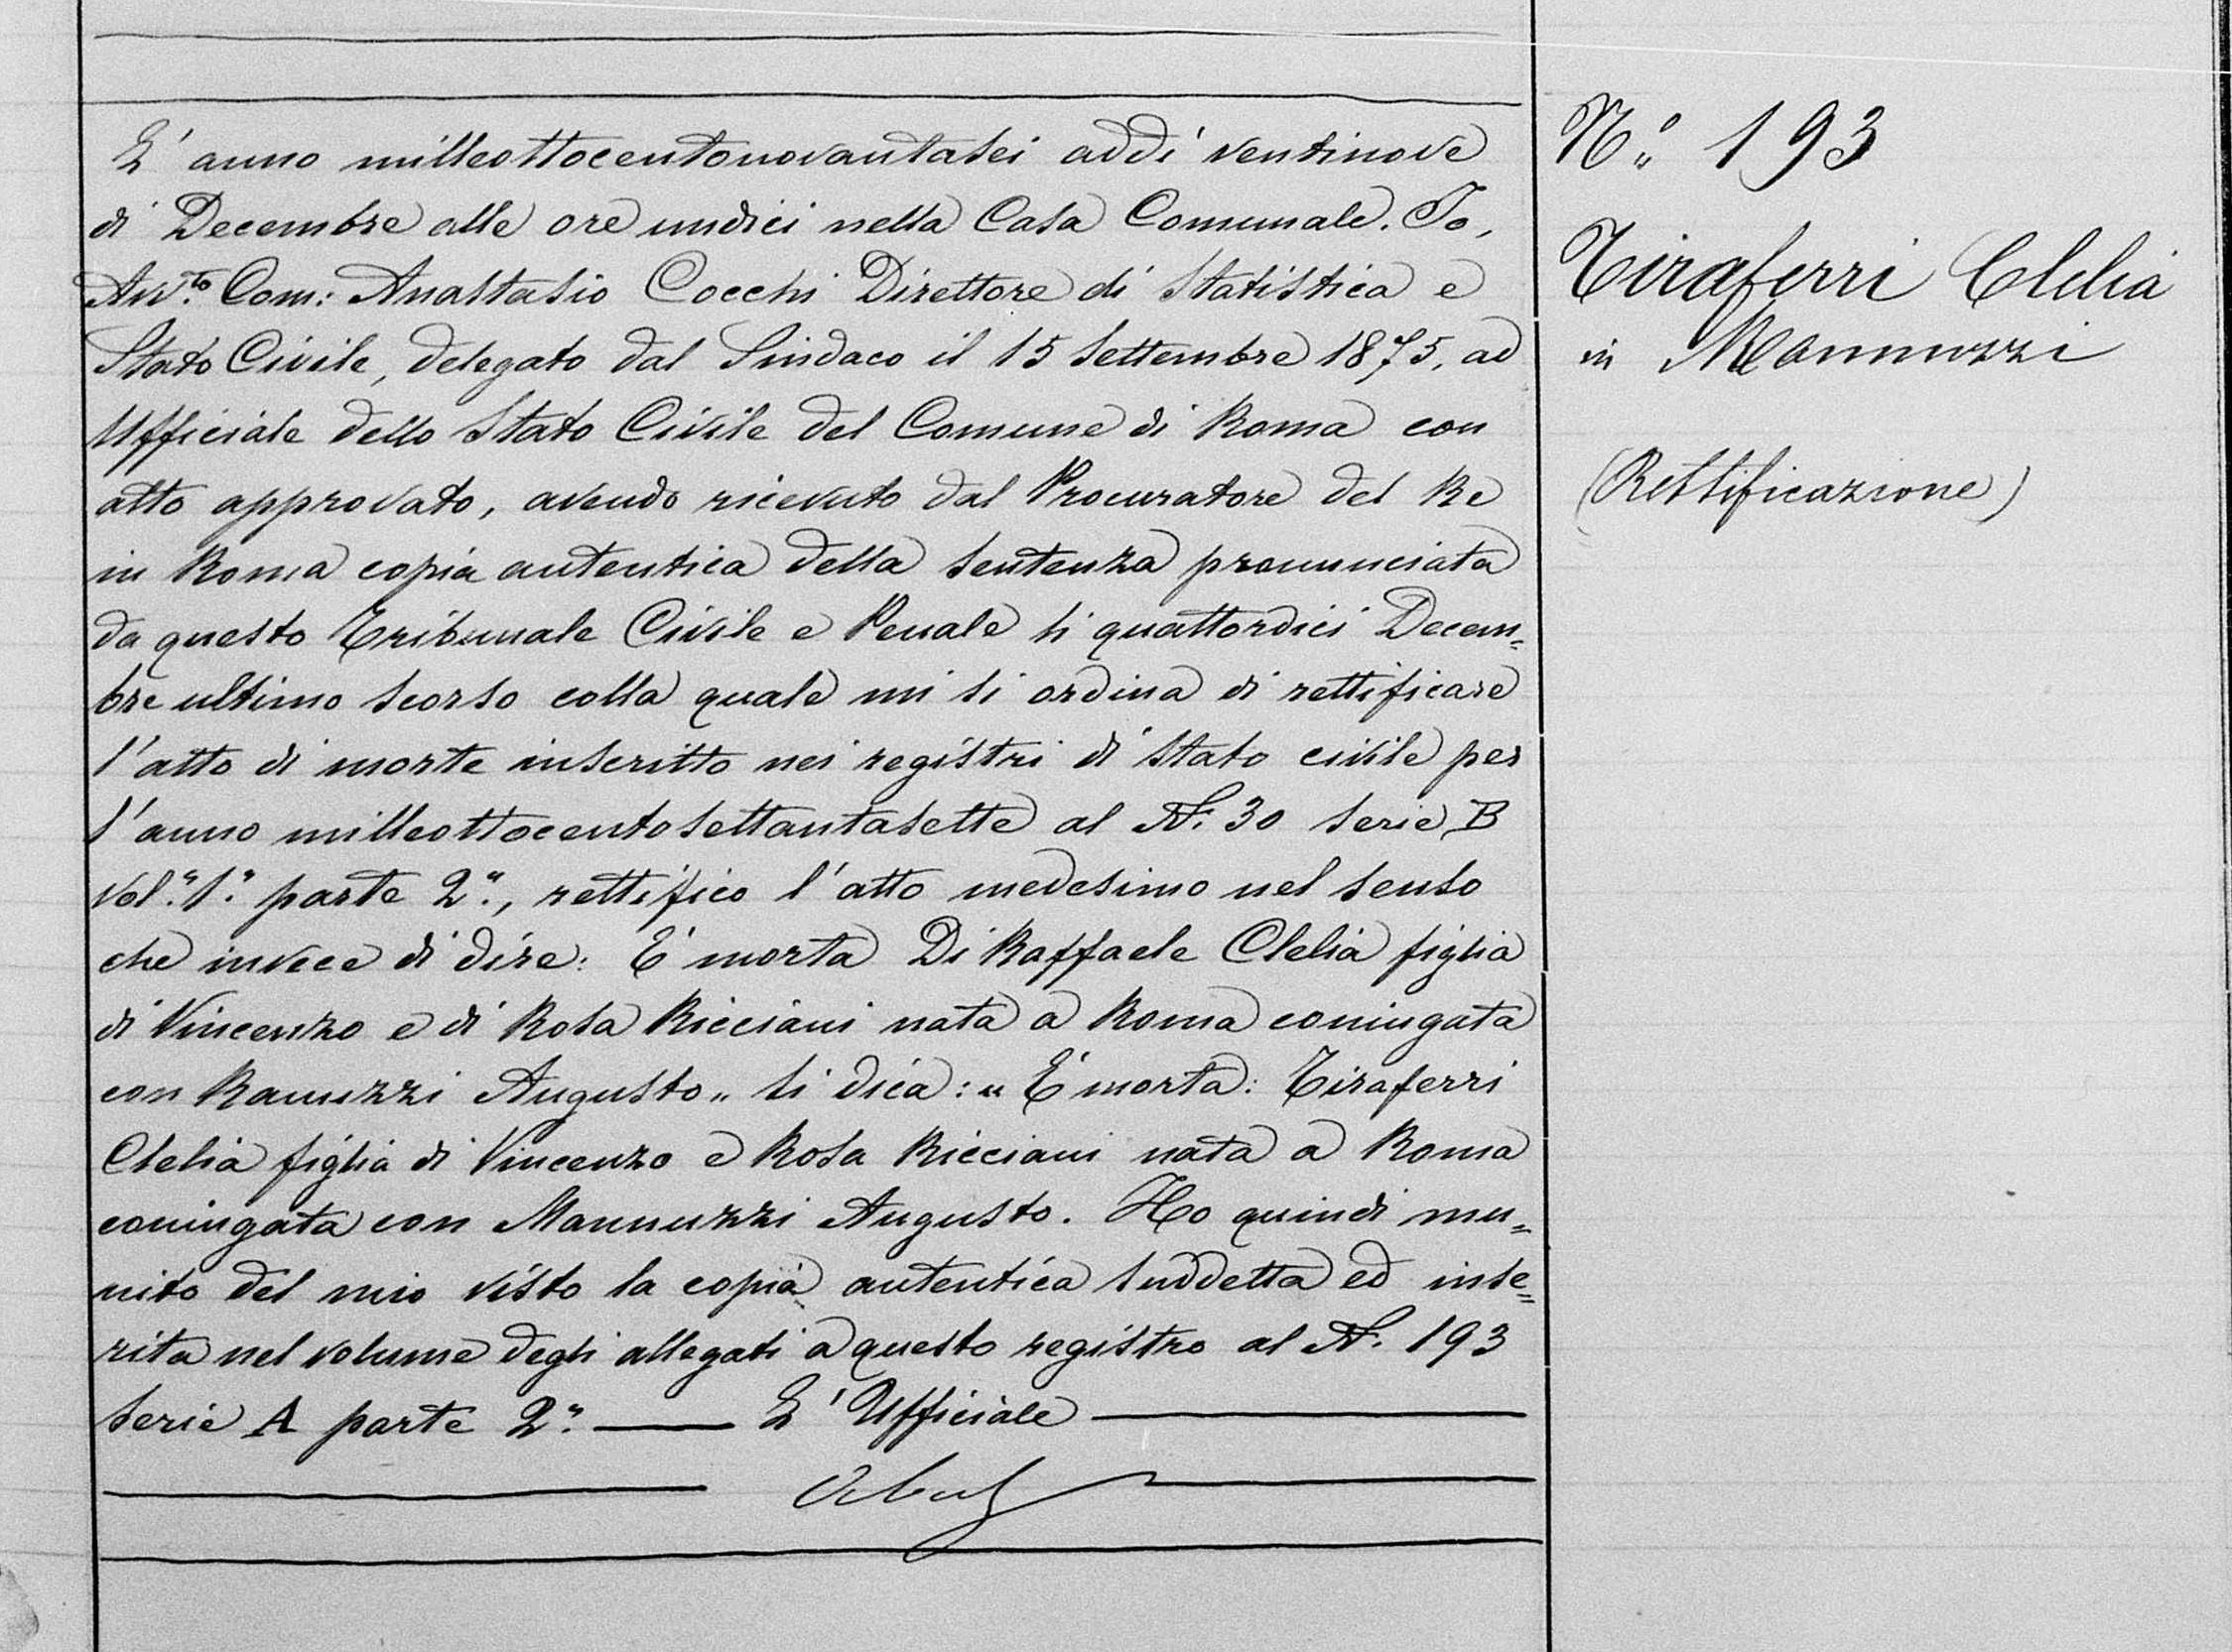 L'anno milleottocentonovantasei addì ventinove
di Decembre alle ore undici nella Casa Comunale. Io,
Avv.to Com: Anastasio Cocchi Direttore di Statistica e
Stato Civile, delegato dal Sindaco il 15 Settembre 1875, ad
Ufficiale dello Stato Civile del Comune di Roma con
atto approvato, avendo ricevuto dal Procuratore del Re
in Roma copia autentica della sentenza pronunciata
da questo Tribunale Civile e Penale li quattordici Decem=
bre ultimo scorso colla quale mi si ordina di rettificare
l'atto di morte inscritto nei registri di stato civile per
l'anno milleottocentosettantasette al N. 30 serie B
vol.° 1.° parte 2.ª, rettifico l'atto medesimo nel senso
che invece di dire: È morta Di Raffaele Clelia figlia
di Vincenzo e di Rosa Ricciani nata a Roma coniugata
con Ranuzzi Augusto „ si dica: „ È morta: Tiraferri
Clelia figlia di Vincenzo e Rosa Ricciani nata a Roma
coniugata con Mannuzzi Augusto. Ho quindi mu=
nito del mio visto la copia autentica suddetta ed inse=
rita nel volume degli allegati a questo registro al N. 193
serie A parte 2.ª L'Ufficiale
N.° 193
Tiraferri Clelia
in Mannuzzi
(Rettificazione)